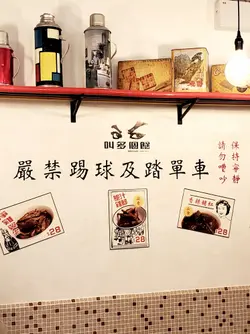 叫多個餸
嚴禁踢球及踏單車
保持寧靜
請勿嘈吵
$28
28
28